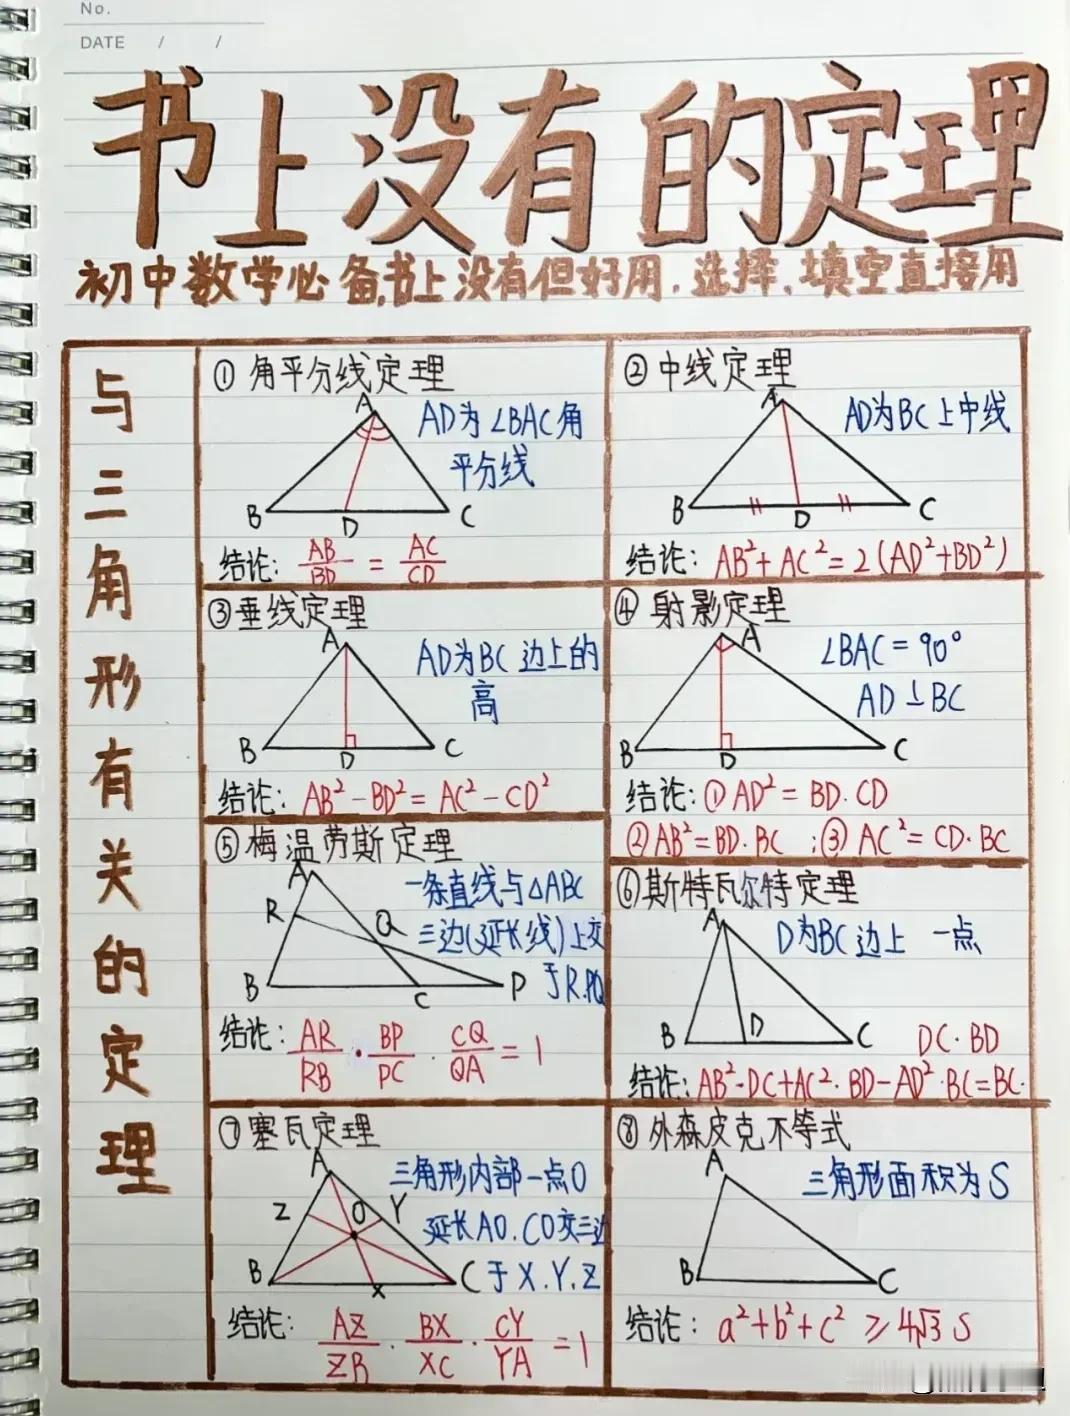 No.
DATE / /
书上没有的定理
初中数学必备,书上没有但好用.选择.填空直接用
与三角形有关的定理
① 角平分线定理
A
AD为∠BAC角
平分线
B D C
结论: AB/BD = AC/CD
② 中线定理
A
AD为BC上中线
B D C
结论: AB²+AC²=2(AD²+BD²)
③ 垂线定理
A
AD为BC边上的
高
B D C
结论: AB²-BD²=AC²-CD²
④ 射影定理
A
∠BAC=90°
AD⊥BC
B D C
结论:①AD²=BD·CD
②AB²=BD·BC ;③AC²=CD·BC
⑤ 梅温劳斯定理
A
一条直线与△ABC
R Q
三边(延长线)上交
于R.PQ
B C P
结论: AR/RB · BP/PC · CQ/QA = 1
⑥ 斯特瓦尔特定理
A
D为BC边上 一点
B D C
DC·BD
结论:AB²·DC+AC²·BD-AD²·BC=BC·
⑦ 塞瓦定理
A
三角形内部一点O
Z O Y
延长AO.CO交三边
于X.Y.Z
B X C
结论: AZ/ZB · BX/XC · CY/YA = 1
⑧ 外森皮克不等式
A
三角形面积为S
B C
结论: a²+b²+c² ≥ 4√3 S